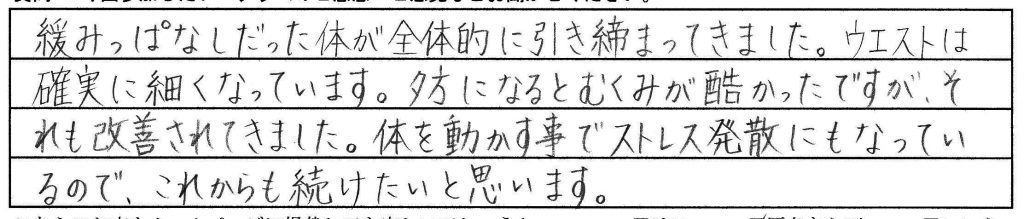 緩みっぱなしだった体が全体的に引き締まってきました。ウエストは
確実に細くなっています。夕方になるとむくみが酷かったですが、そ
れも改善されてきました。体を動かす事でストレス発散にもなってい
るので、これからも続けたいと思います。